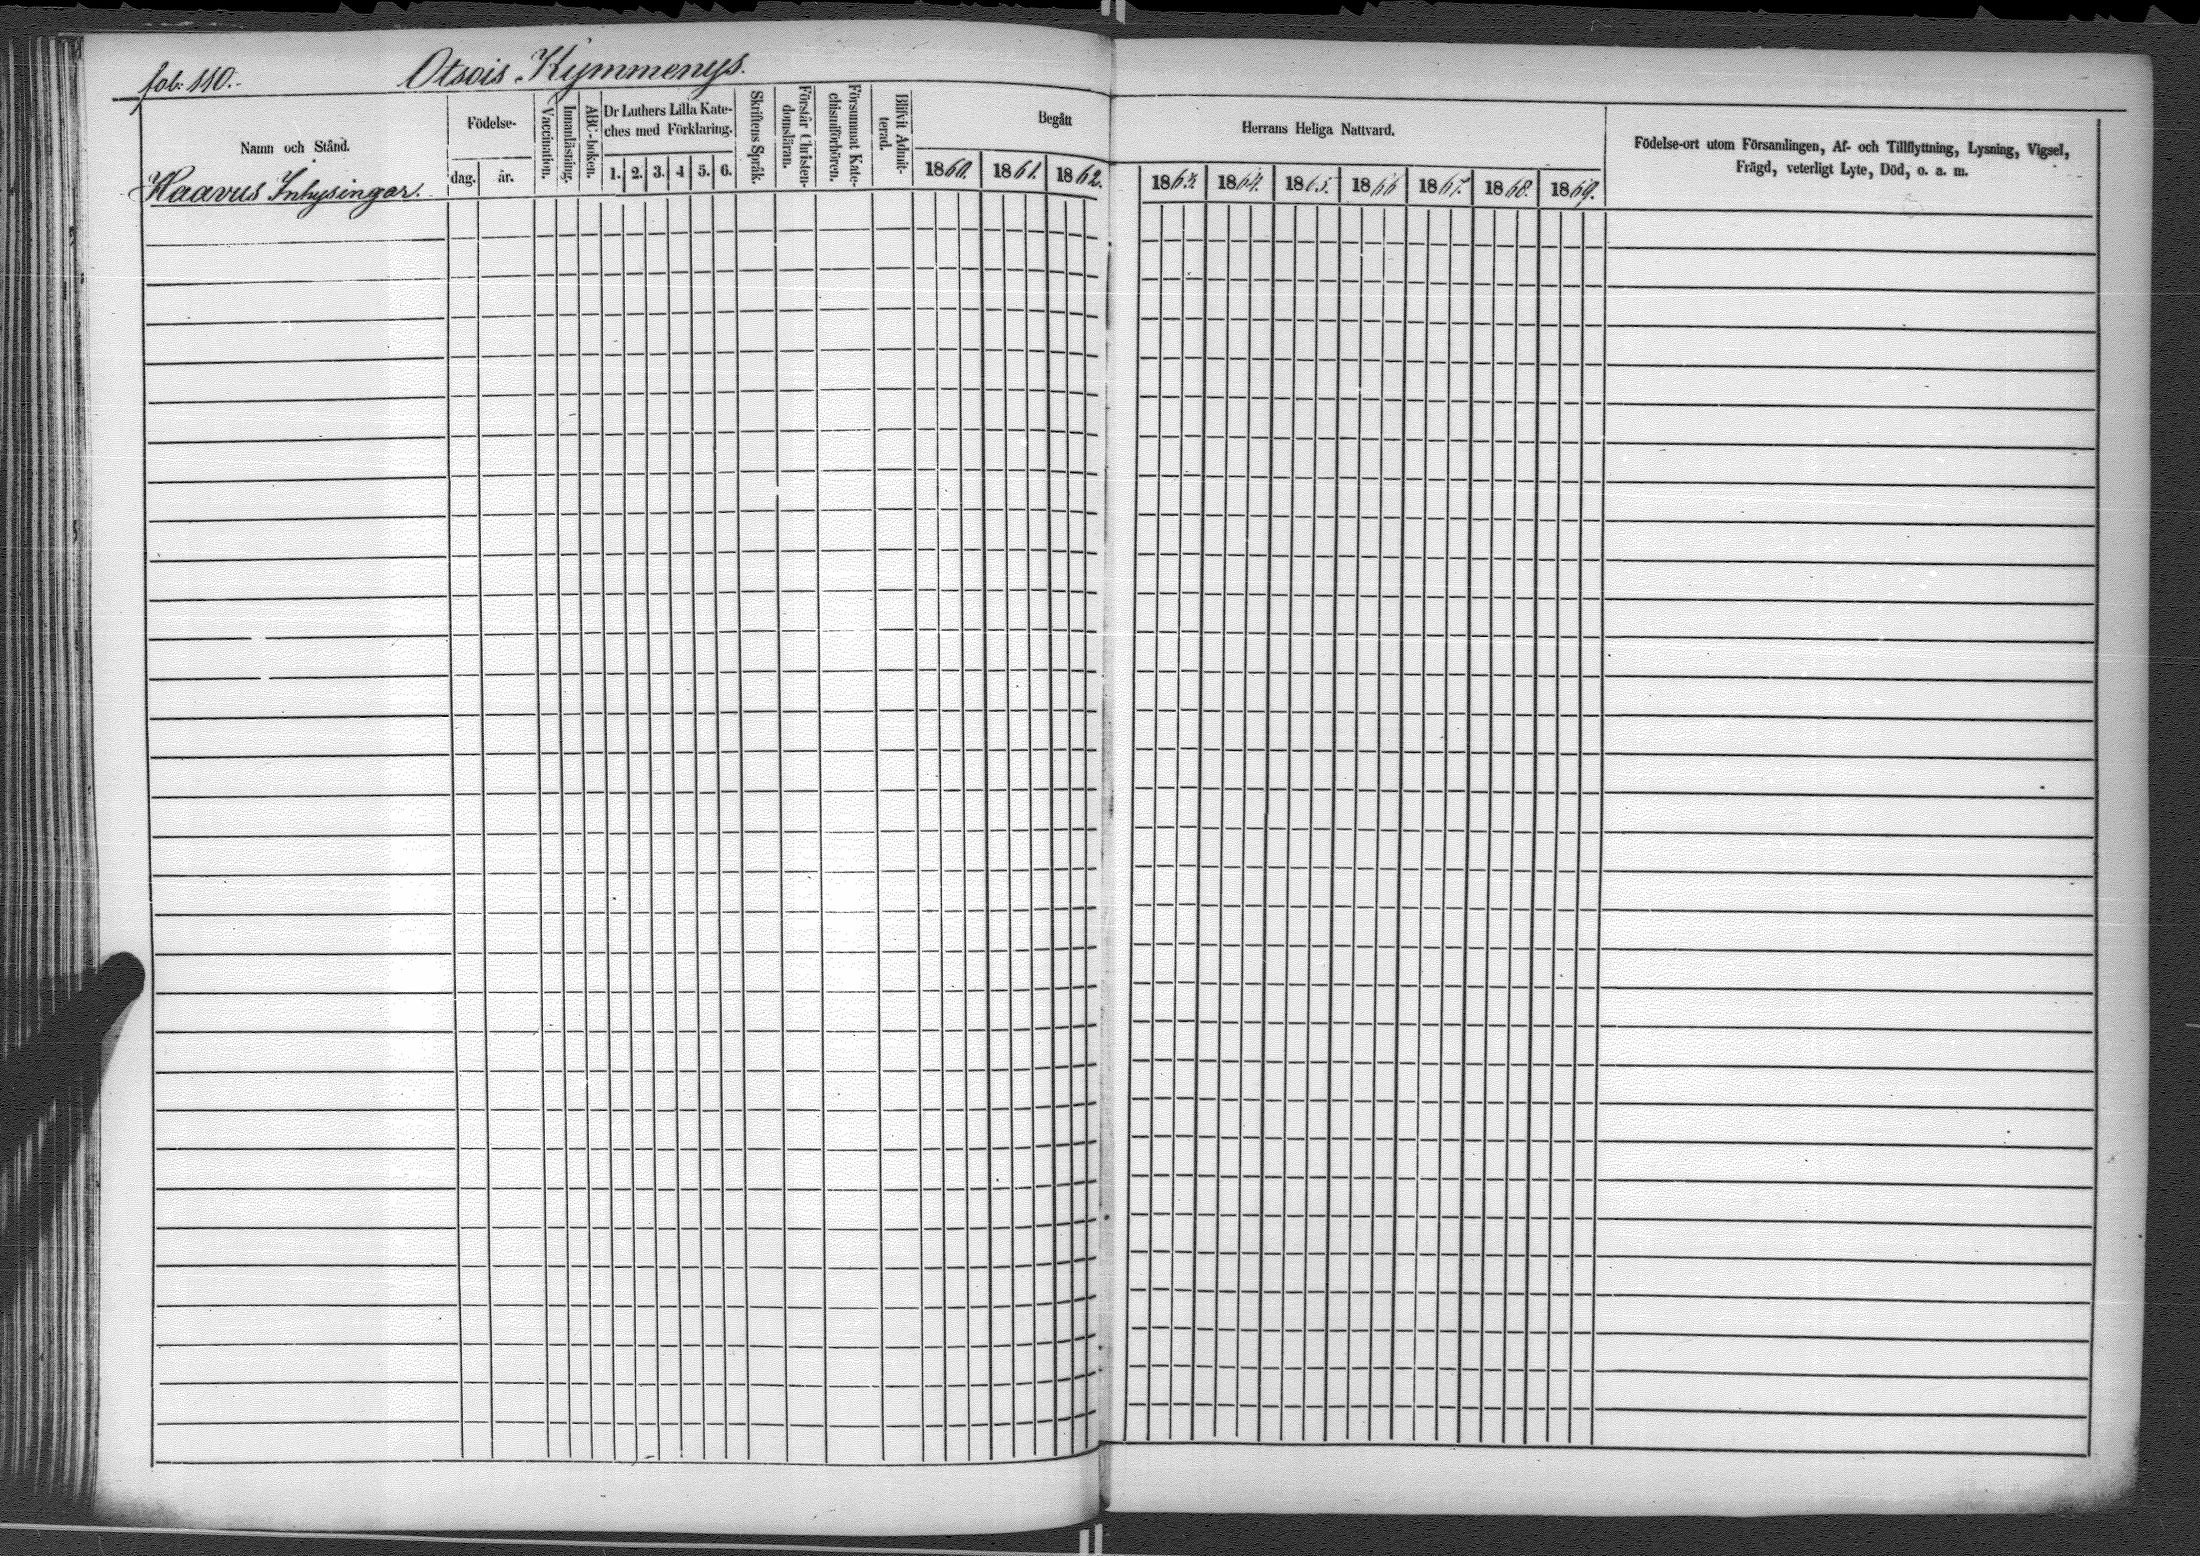 fol: 110.
Otsois Kymmenys.
Namn och Stånd.
Födelse-
dag.
år.
Vaccination.
Innanläsning.
ABC-boken.
Dr Luthers Lilla Kate-
ches med Förklaring.
1. 2. 3. 4 5. 6.
Skriftens Språk.
Förstår Christen-
domsläran.
Försummat Kate-
chismiförhören.
Blifvit Admit-
terad.
Begått
1860. 1861. 1862.
Herrans Heliga Nattvard.
1863. 1864. 1865. 1866 1867. 1868. 1869.
Födelse-ort utom Församlingen, Af- och Tillflyttning, Lysning, Vigsel,
Frägd, veterligt Lyte, Död, o. a. m.
Haavus Inhysingar.